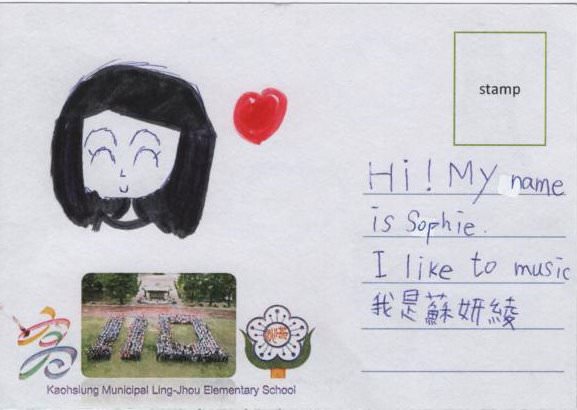 stamp
Hi! My name
is Sophie.
I like to music
我是蘇妍綾
110
Kaohsiung Municipal Ling-Jhou Elementary School